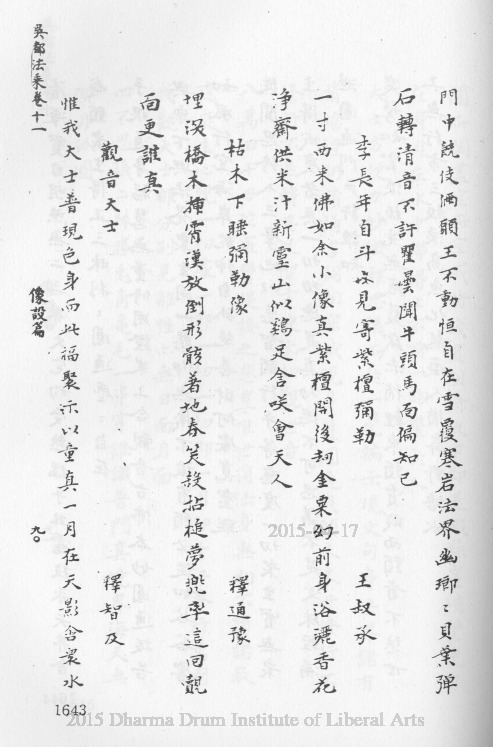 吳都法乘卷十一
門中競伎倆頭王不動恒自在雪覆寒岩法界幽瑯〻貝葉彈
石轉清音不許瞿曇聞牛頭馬面偏知己
李長年自斗 見寄紫檀彌勒 王叔承
一寸西來佛如余小像真紫檀閻後刼金粟幻前身浴灑香花
淨齋供米汁新靈山似鷄足含咲會天人
枯木下睡彌勒像 釋通豫
埋没橋木揷霄漢放倒形骸著地春笑殺拈槌夢兜率這回覿
面更誰真
觀音大士 釋智及
惟我大士普現色身而此福聚示以童真一月在天影含衆水
像設篇
九〇
1643
2015-  -17
2015 Dharma Drum Institute of Liberal Arts